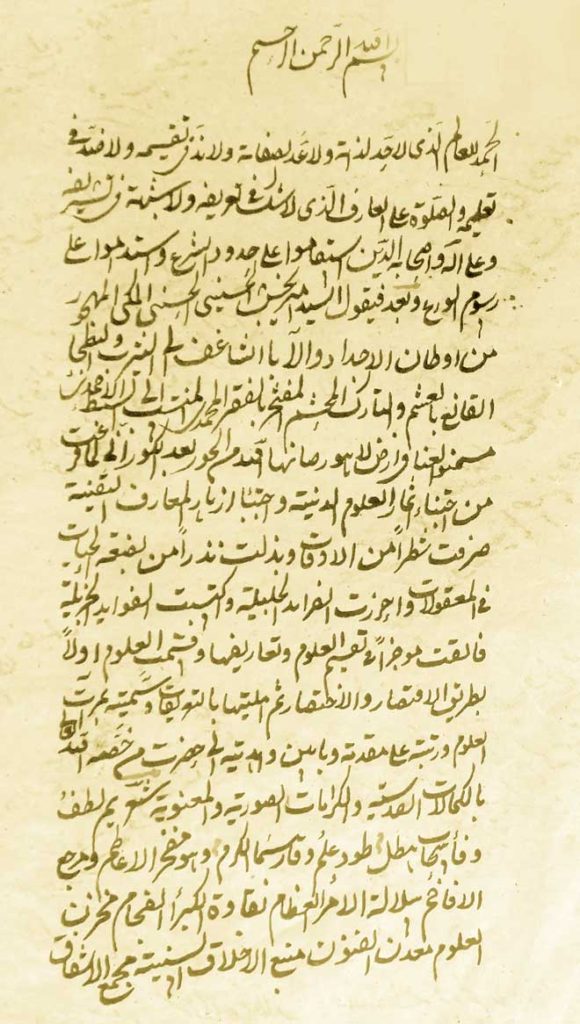 بسم الله الرحمن الرحيم
الحمد للعالم الذى لا حد لذاته ولا عد لصفاته ولا ند فى تقسيمه ولا ضد فى
تعليمه والصلوة على العارف الذى لا شك فى تعريفه ولا شبهة فى تشريفه
وعلى آله واصحابه الذين استقاموا على حدود الشرع واستداموا على
رسوم الورع وبعد فيقول السيد مير بخش الحسينى الحسنى المكى المهجور
من اوطان الاجداد والآباء الشاغف لم النثر والنظم
القانع بالعشم والتارك المحتشم المفتخر بالفقر المحمدى المنتسب الى
ارض لاهور صانها الله من الحور بعد الكور انى لما فرغت
من اجتناء ثمار العلوم الدنية واجتباء ازهار المعارف اليقينية
صرفت شطراً من الاوقات وبذلت نذراً من بضعة الحيات
فى المعقولات واحرزت الفرائد الجليلة واكتسبت الفوايد الجزيلة
فالفت موجزاً فى تقسيم العلوم وتعاريفها وقسمت العلوم اولاً
بطريق الاقتصار والاختصار ثم اتليتها بالتعريفات وسميته بمرآت
العلوم ورتبته على مقدمة وبابين وهديته الى حضرت من خصه الله
بالكمالات القدسية والكرامات الصورية والمعنوية لطف
سحاب مطل طود علم وقار سما الكرم وهو مفخر الاعاظم ومرجع
الافاخم سلالة الامراء العظام نقاوة الكبراء الفخام مخزن
العلوم معدن الفنون منبع الاخلاق السنية مجمع الاشفاق